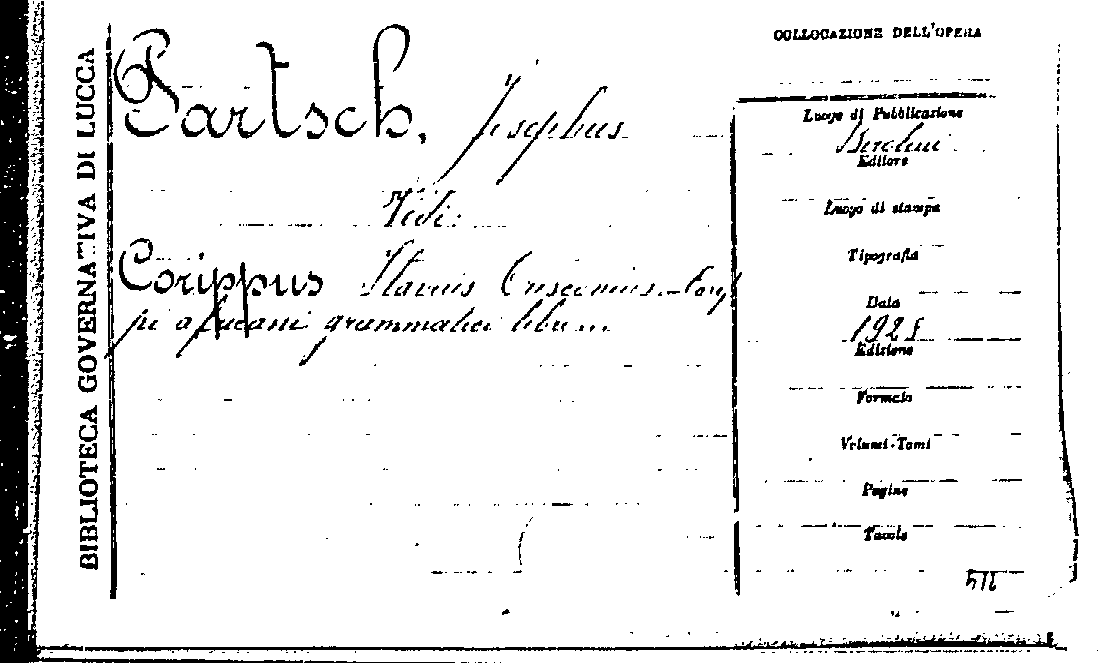 BIBLIOTECA GOVERNATIVA DI LUCCA
Partsch, Josephus
Vedi:
Corippus Flavius Cresconius Corip
pi africani grammatici libr...
COLLOCAZIONE DELL'OPERA
Luogo di Pubblicazione
Berolini
Editore
Luogo di stampa
Tipografia
Data
1925
Edizione
Formato
Volumi-Tomi
Pagine
Tavole